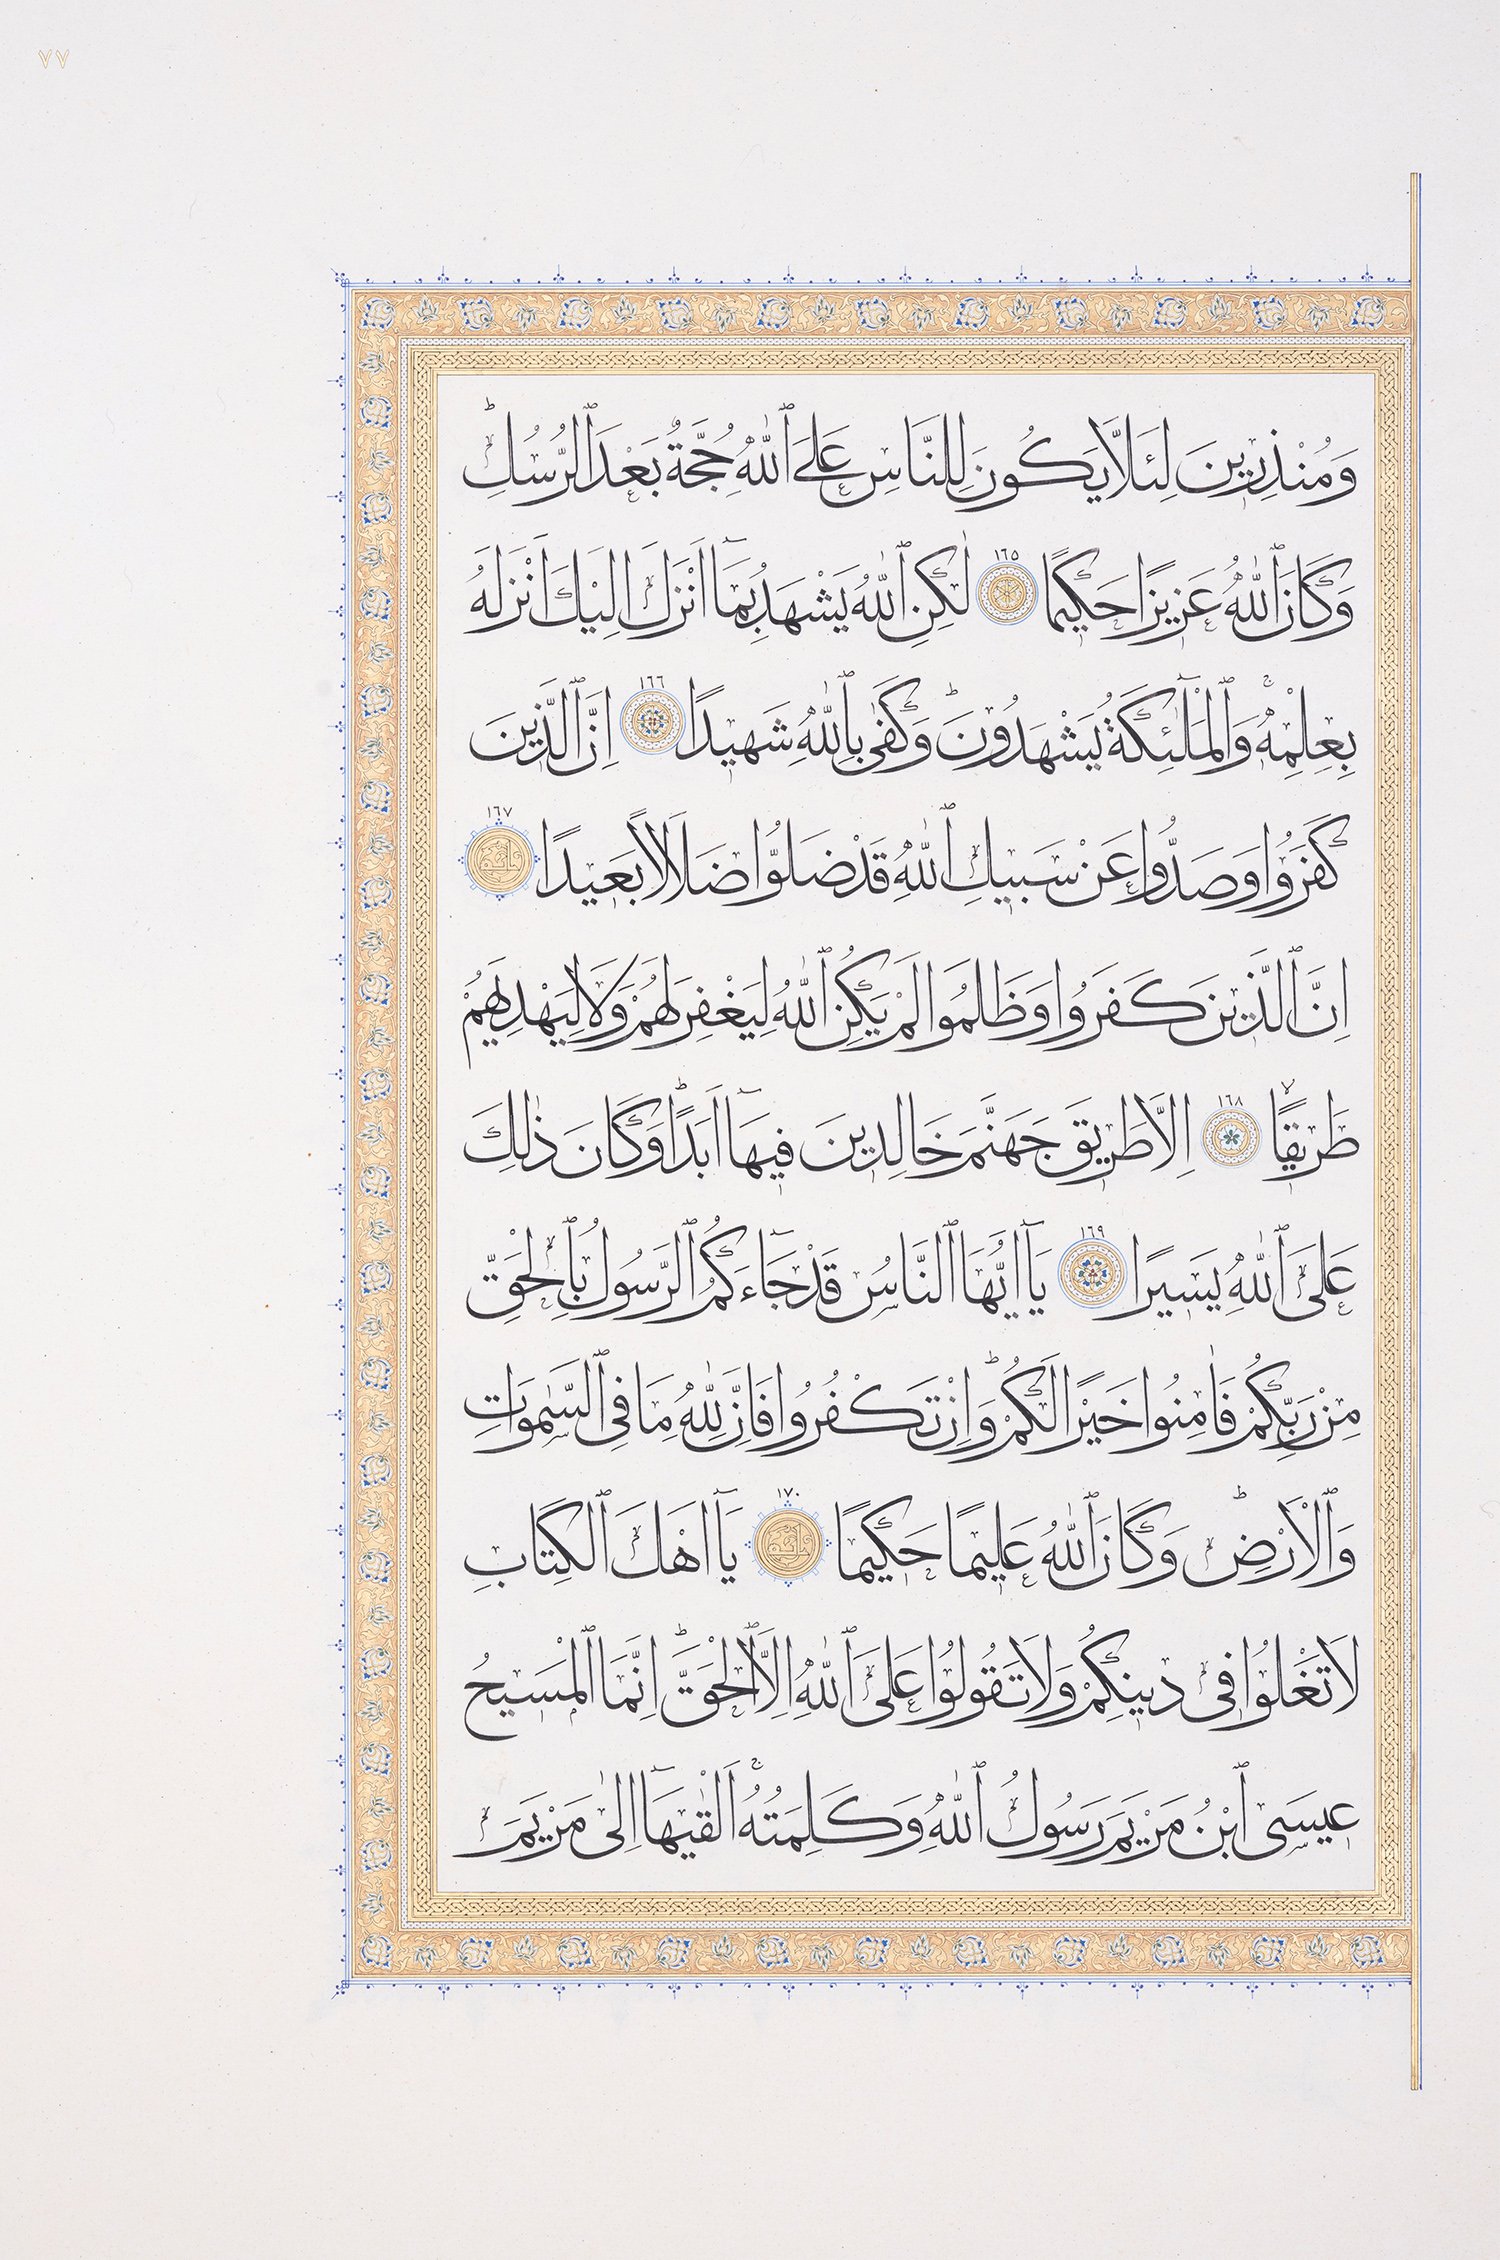 ٧٧
وَمُنْذِرِينَ لِئَلَّا يَكُونَ لِلنَّاسِ عَلَى ٱللّٰهِ حُجَّةٌ بَعْدَ ٱلرُّسُلِؕ
وَكَانَ ٱللّٰهُ عَزِيزًا حَكِيمًا ١٦٥ لٰكِنِ ٱللّٰهُ يَشْهَدُ بِمَٓا اَنْزَلَ اِلَيْكَ اَنْزَلَهُ
بِعِلْمِهٖۚ وَالْمَلٰٓئِكَةُ يَشْهَدُونَؕ وَكَفٰى بِاللّٰهِ شَهِيدًا ١٦٦ اِنَّ ٱلَّذِينَ
كَفَرُوا وَصَدُّوا عَنْ سَبِيلِ ٱللّٰهِ قَدْ ضَلُّوا ضَلَالًا بَعِيدًا ١٦٧
اِنَّ ٱلَّذِينَ كَفَرُوا وَظَلَمُوا لَمْ يَكُنِ ٱللّٰهُ لِيَغْفِرَ لَهُمْ وَلَا لِيَهْدِيَهُمْ
طَرِيقًاۙ ١٦٨ اِلَّا طَرِيقَ جَهَنَّمَ خَالِدِينَ فِيهَٓا اَبَدًاؕ وَكَانَ ذٰلِكَ
عَلَى ٱللّٰهِ يَسِيرًا ١٦٩ يَٓا اَيُّهَا ٱلنَّاسُ قَدْ جَٓاءَكُمُ ٱلرَّسُولُ بِٱلْحَقِّ
مِنْ رَبِّكُمْ فَاٰمِنُوا خَيْرًا لَكُمْؕ وَاِنْ تَكْفُرُوا فَاِنَّ لِلّٰهِ مَا فِى ٱلسَّمٰوَاتِ
وَٱلْاَرْضِؕ وَكَانَ ٱللّٰهُ عَلِيمًا حَكِيمًا ١٧٠ يَٓا اَهْلَ ٱلْكِتَابِ
لَا تَغْلُوا فِى دِينِكُمْ وَلَا تَقُولُوا عَلَى ٱللّٰهِ اِلَّا ٱلْحَقَّؕ اِنَّمَا ٱلْمَسِيحُ
عِيسَى ٱبْنُ مَرْيَمَ رَسُولُ ٱللّٰهِ وَكَلِمَتُهُۚ اَلْقٰيهَٓا اِلٰى مَرْيَمَ